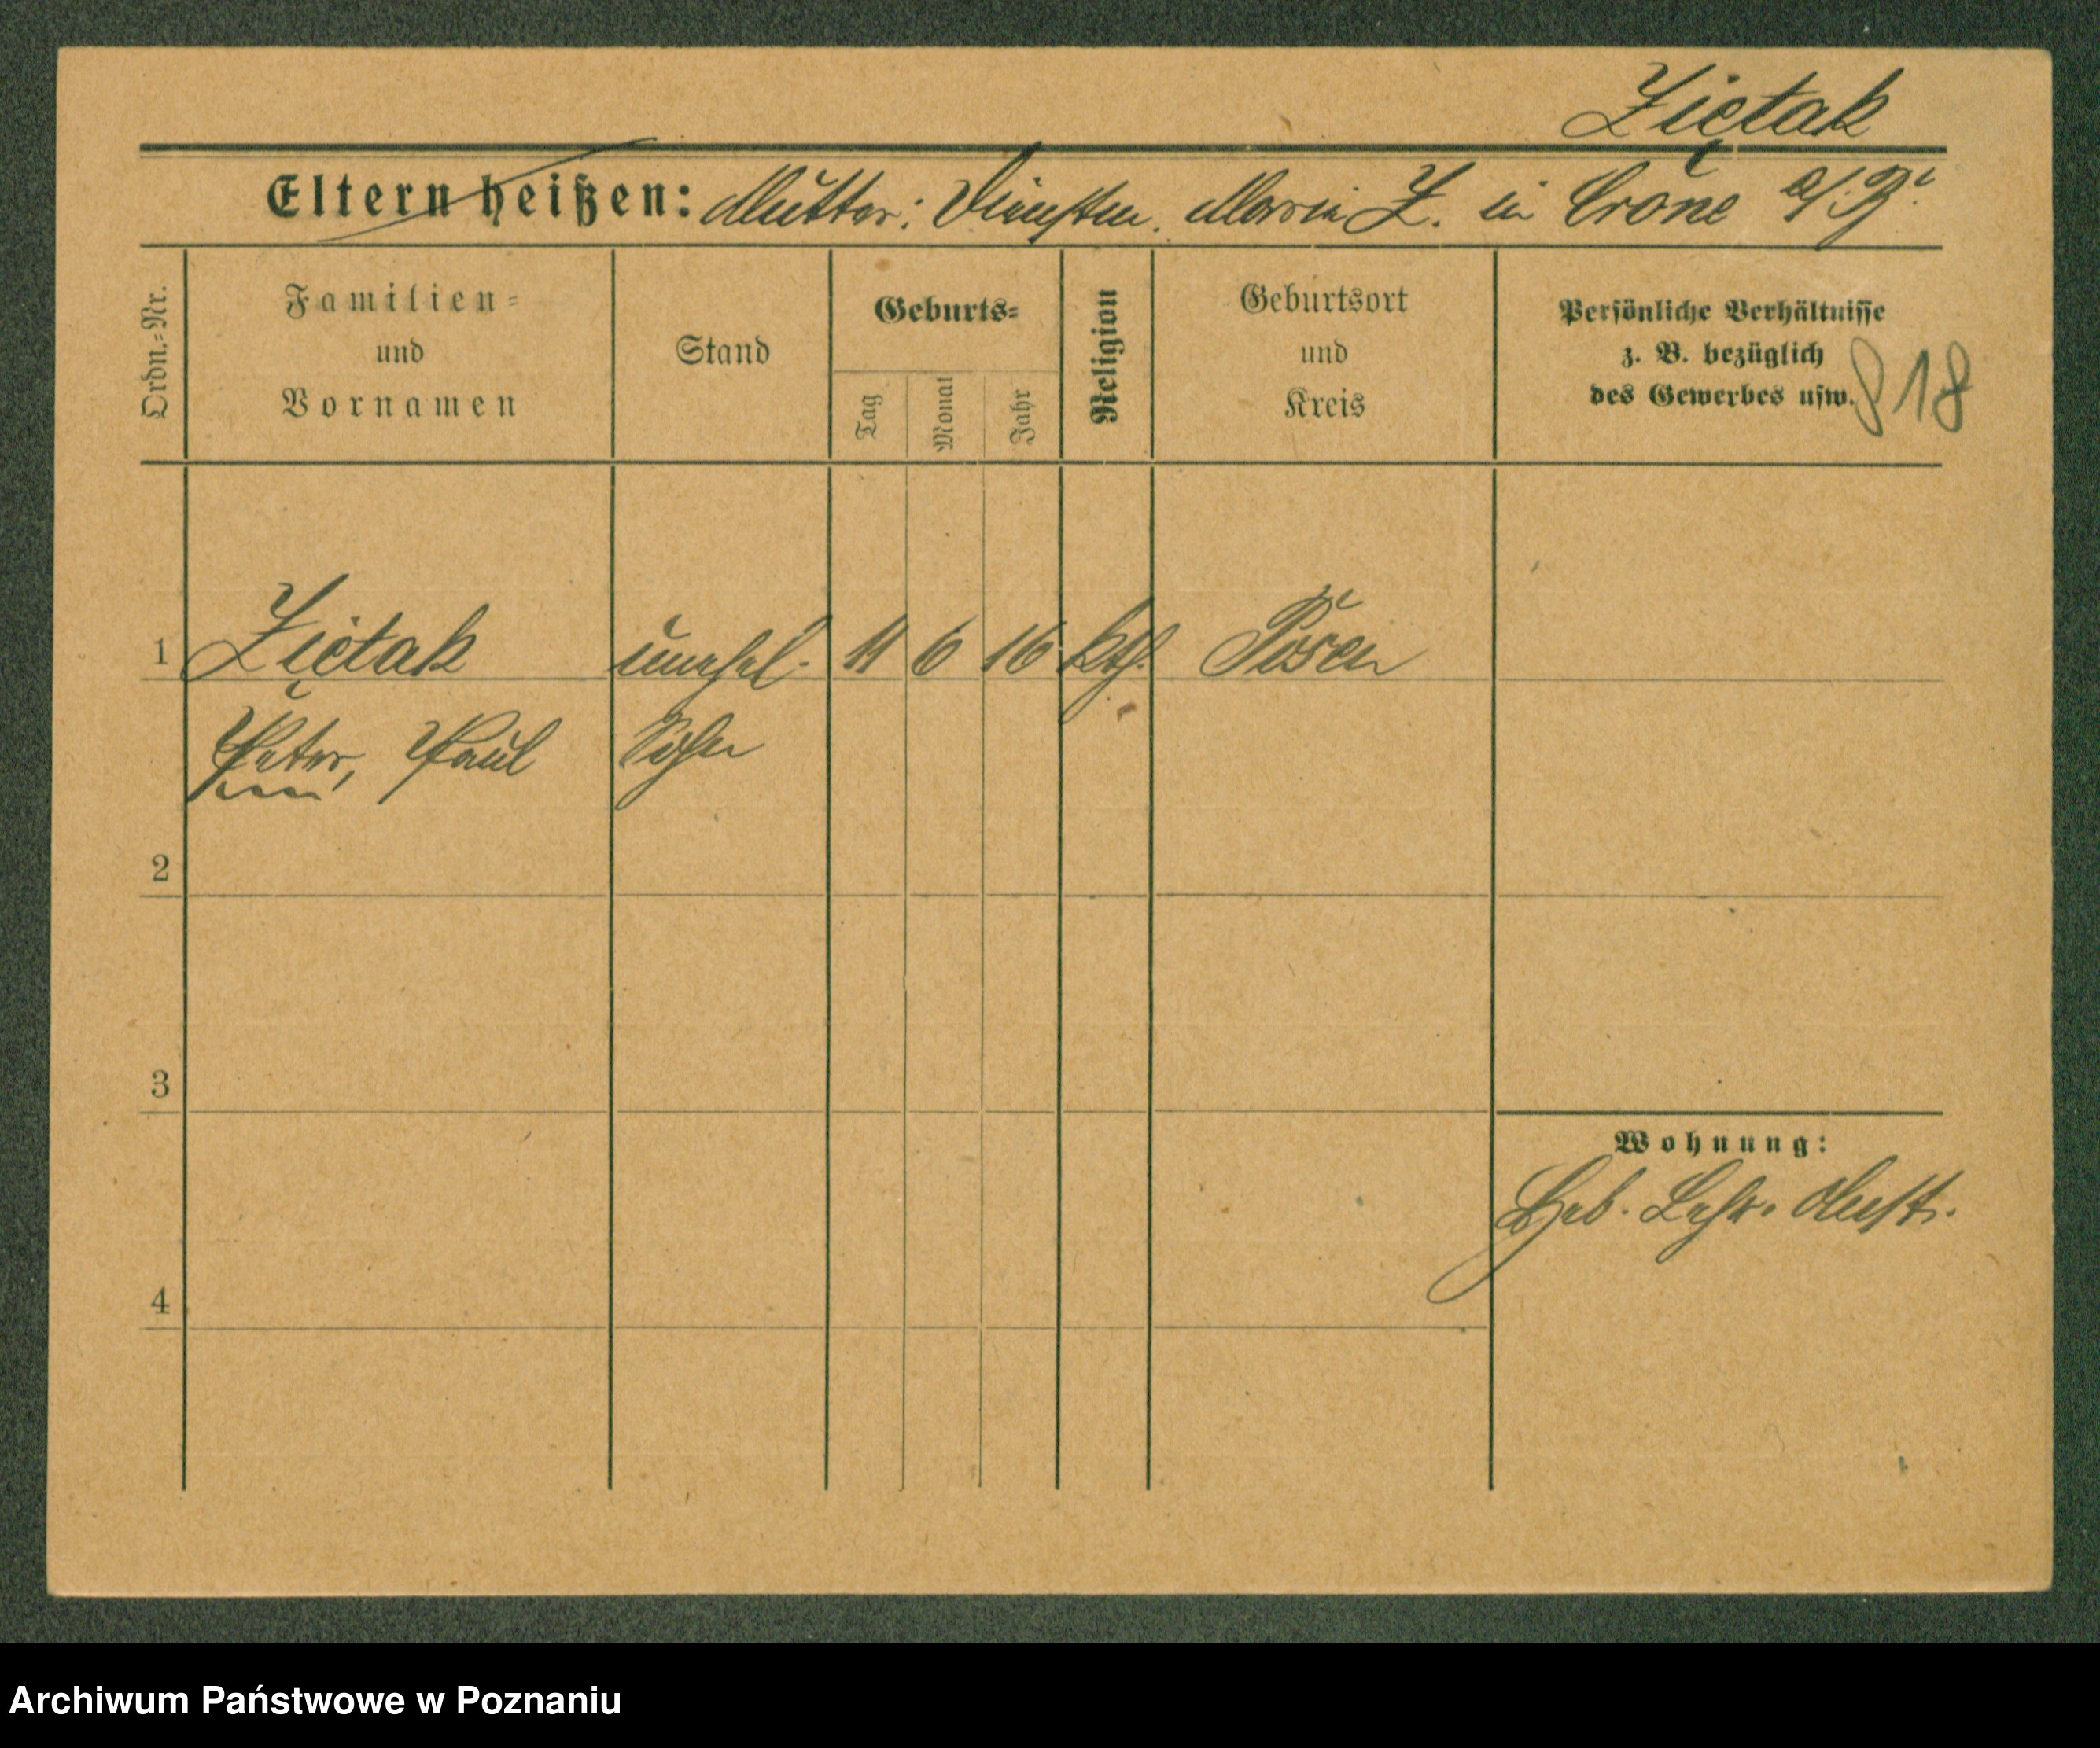 Ziętak
Eltern heißen: Mutter: Dienstm. Maria Z. in Crone a/Br.
Ordn.-Nr.
Familien-
und
Vornamen
Stand
Geburts-
Tag
Monat
Jahr
Religion
Geburtsort
und
Kreis
Persönliche Verhältnisse
z. B. bezüglich
des Gewerbes usw.
818
1 Ziętak unehel. 11 6 16 kth. Posen
Peter, Paul Sohn
2
3
Wohnung:
Heb. Lehr. Anst.
4
Archiwum Państwowe w Poznaniu